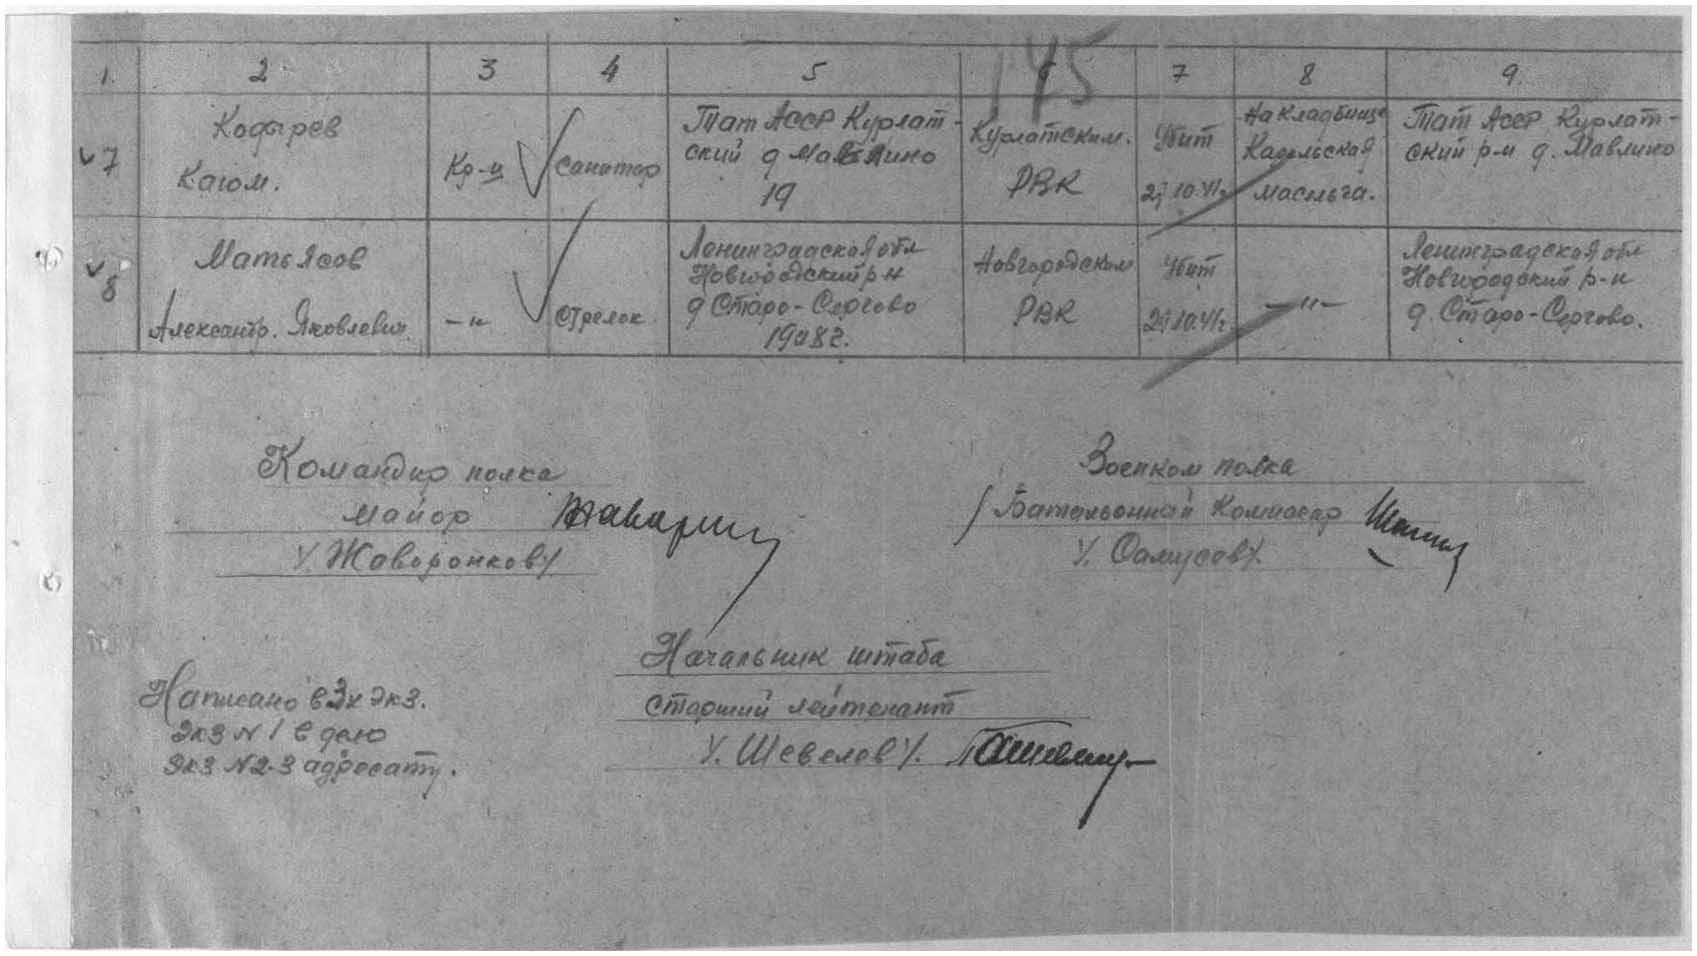 145
1. 2 3 4 5 6 7 8 9.
v7
Кадырев
Каюм.
Кр-ц
Санитар
Тат АССР Курлат-
ский д Мавлино
19
Курлатским.
РВК
Убит
10.41г.
На кладбище
масельга.
Тат АССР Курлат-
ский р-н д. Мавлино
v8
Матьясов
Александр. Яковлевич.
-"-
Стрелок
Ленинградская обл
Новгородский р-н
д Старо-Сергово
1908г.
Новгородским
РВК
Убит
10.41г.
-"-
Ленинградская обл
Новгородский р-н
д. Старо-Сергово.
Командир полка
майор
/. Жаворонков/
Военком полка
/Батальонный Комиссар
Начальник штаба
старший лейтенант
/. Шевелев/.
Написано в 3х экз.
Экз № 1 в дело
Экз № 2-3 адресату.